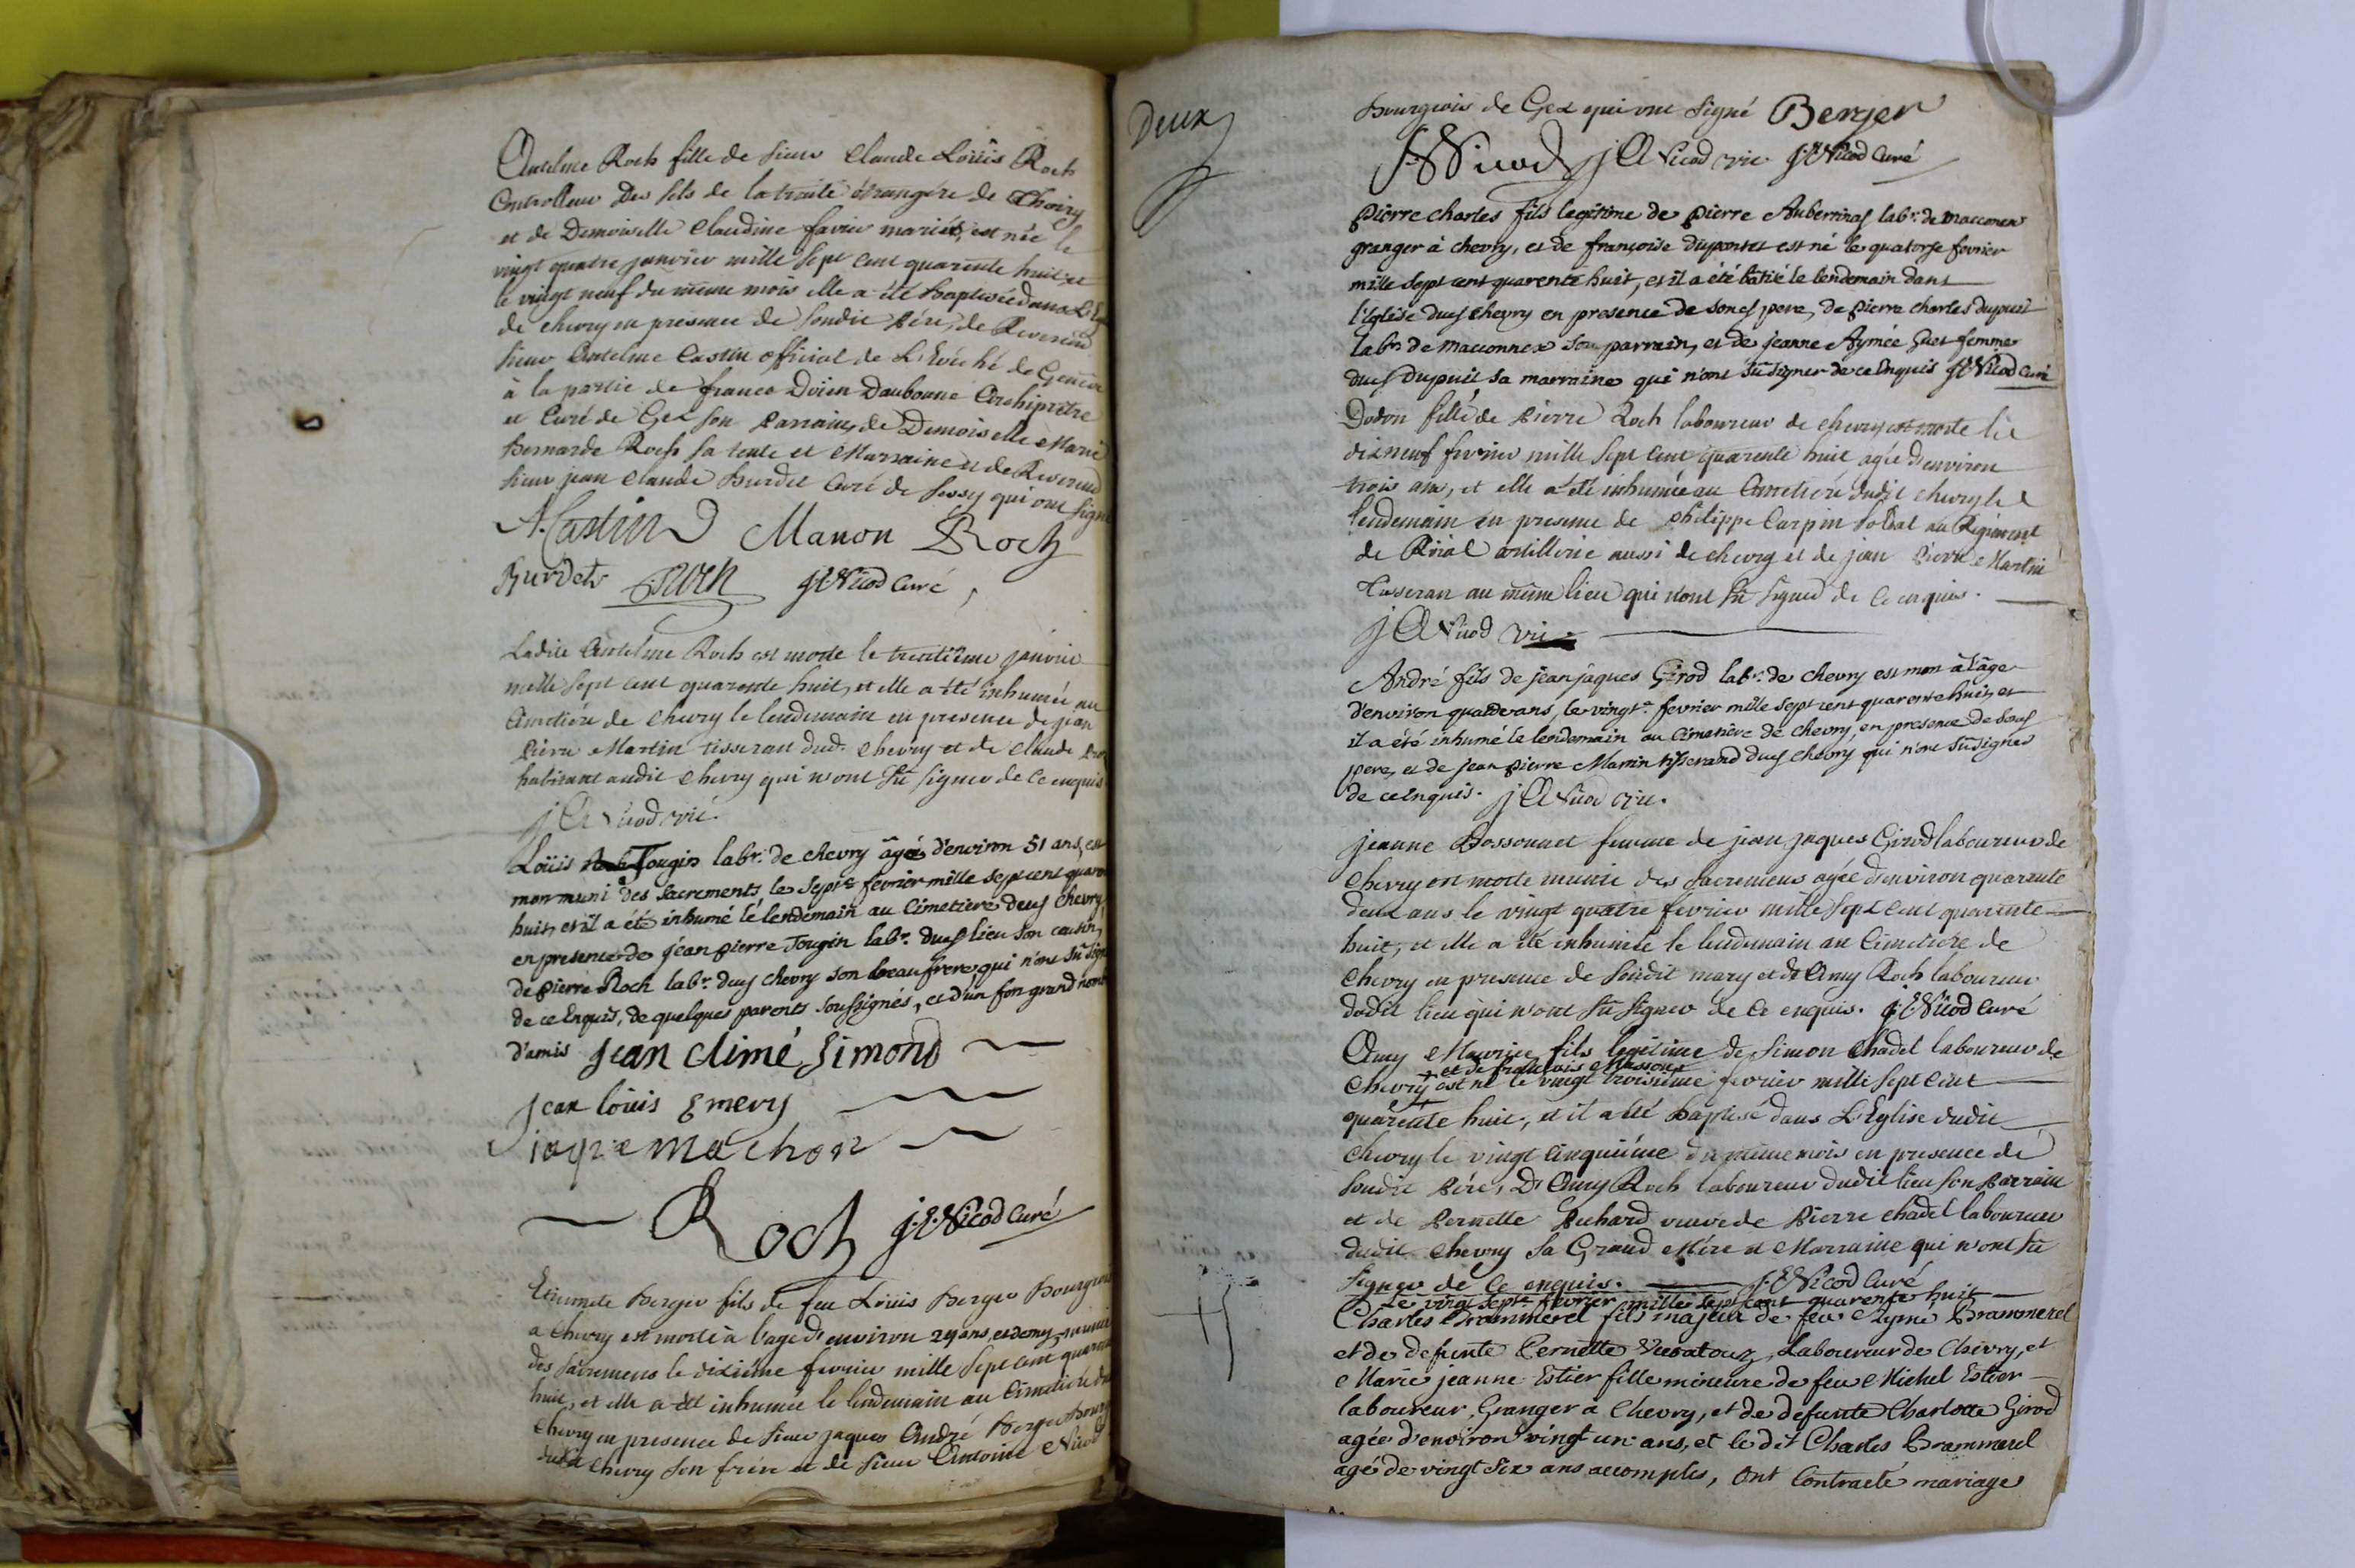 Antelme Roch fille de sieur Claude Loüis Roch
Controlleur Des sels de la traite étrangére de Thoiry
et de Demoiselle Claudine favre mariés, est née le
vingt quatre janvier mille sept cent quarente huit, et
le vingt neuf du même mois elle a été baptisée dans L'Egl
de chevry en presence de sondit Pére, de Reverend
sieur Antelme Castin official de L'Evéché de Genéve
à la partie de france Doien Daubonne Archiprêtre
et Curé de Gex son Parrain, de Demoiselle Marie
bernarde Roch sa tente et Marraine et de Reverend
sieur jean Claude burdet Curé de sessy qui ont signé
A. Castin Manon Roch
Burdet Roch J.E. Nicod Curé
Ladite Antelme Roch est morte le trentiême janvier
mille sept cent quarente huit, et elle a été inhumée au
Cimetiére de chevry le lendemain en presence de jean
Pierre Martin tisseran dud. chevry et de Claude
habitant audit chevry qui n'ont sû signer de ce enquis
j A Nicod vic.
Loüis Tougin labr. de chevry âgé d'environ 51 ans, est
mort muni des sacrements, le septe. fevrier mille sept cent quare
huit, et il a été inhumé le lendemain au Cimetiere dud chevry
en presence de jéan pierre Tougin labr. dud lieu son cousin,
de pierre Roch labr. dud chevry son beaufrere qui n'ont sû sign
de ce Enquis, de quelques parents soussignés, et d'un fon grand nomb
d'amis jean Aimé Simond
jean loüis Emery
jaque machon
Roch J.E. Nicod Curé
Etiennete berger fils de feu Loüis berger bourgeois
a Chevry est morte à l'age d'environ 29 ans, et demy, munie
des sacremens le dixiême fevrier mille sept cent quarente
huit, et elle a été inhumée le lendemain au Cimetiére du
chevry en presence de sieur jaques André berger bourg
dudit chevry son frére et de sieur Antoine Nicod
Deux
bourgeois de Gex qui ont signé Berger
A Nicod j A Nicod vic. J.E. Nicod Curé
pierre charles fils legitime de pierre Auberrinas labr. de macconex
granger à chevry, et de françoise dupontet est né le quatorze fevrier
mille sept cent quarente huit, et il a été batisé le lendemain dans
l'Eglise dud chevry en presence de sond pere, de pierre charles dupuit
labr. de macconnex son parrain, et de jeanne Aymée Guet femme
dud Dupuit sa marraine qui n'ont sû signer de ce Enquis J.E. Nicod Curé
Dodon fille de Pierre Roch laboureur de chevry est morte le
dixneuf fevrier mille sept cent quarente huit agée d'environ
trois ans, et elle a été inhumée au Cimetiére dudit chevry le
lendemain en presence de philippe Carpin soldat au Regiment
de Roial artillerie aussi de chevry et de jean Pierre Martin
tisseran au même lieu qui n'ont sû signer de ce enquis.
j A Nicod vic
André fils de jean jaques Girod labr. de chevry est mort à l'âge
d'environ quatre ans, le vingte. fevrier mille sept cent quarente huit, et
il a été inhumé le lendemain au Cimetiere de chevry, en presence de sond
pere, et de jean pierre Martin tisserand dud chevry qui n'ont sû signer
de ce Enquis. j A Nicod vic.
jeanne Dossonnet femme de jean jaques Girod laboureur de
chevry est morte munie des sacremens agée d'environ quarente
deux ans le vingt quatre fevrier mille sept cent quarente
huit, et elle a été inhumée le lendemain au Cimetiére de
chevry en presence de sondit mary et de Amy Roch laboureur
dudit lieu qui n'ont sû signer de ce enquis. J.E. Nicod Curé
Amy Maurice fils legitime de simon Chadel laboureur de
+ et de françoise Masson +
chevry est né le vingt troisiême fevrier mille sept cent
quarente huit, et il a été baptisé dans L'Eglise dudit
chevry le vingt Cinquiéme du même mois en presence de
sondit Pére, D'Amy Roch laboureur dudit lieu son Parrain
et de Pernette Puthard veuve de Pierre chadel laboureur
dudit chevry sa Grand Mére et Marraine qui n'ont sû
signer de ce enquis. J.E. Nicod Curé
Le vingt septe. fevrier mille sept cent quarente huit
Charles Brammerel fils majeur de feu Aymé Brammerel
et de defunte Pernette Laboureur de Chevry, et
Marie jeanne Estier fille mineure de feu Michel Estier
laboureur, Granger à Chevry, et de defunte Charlotte Girod
agée d'environ vingt un ans, et le dit Charles Brammerel
agé de vingt six ans accomplis, ont Contracté mariage